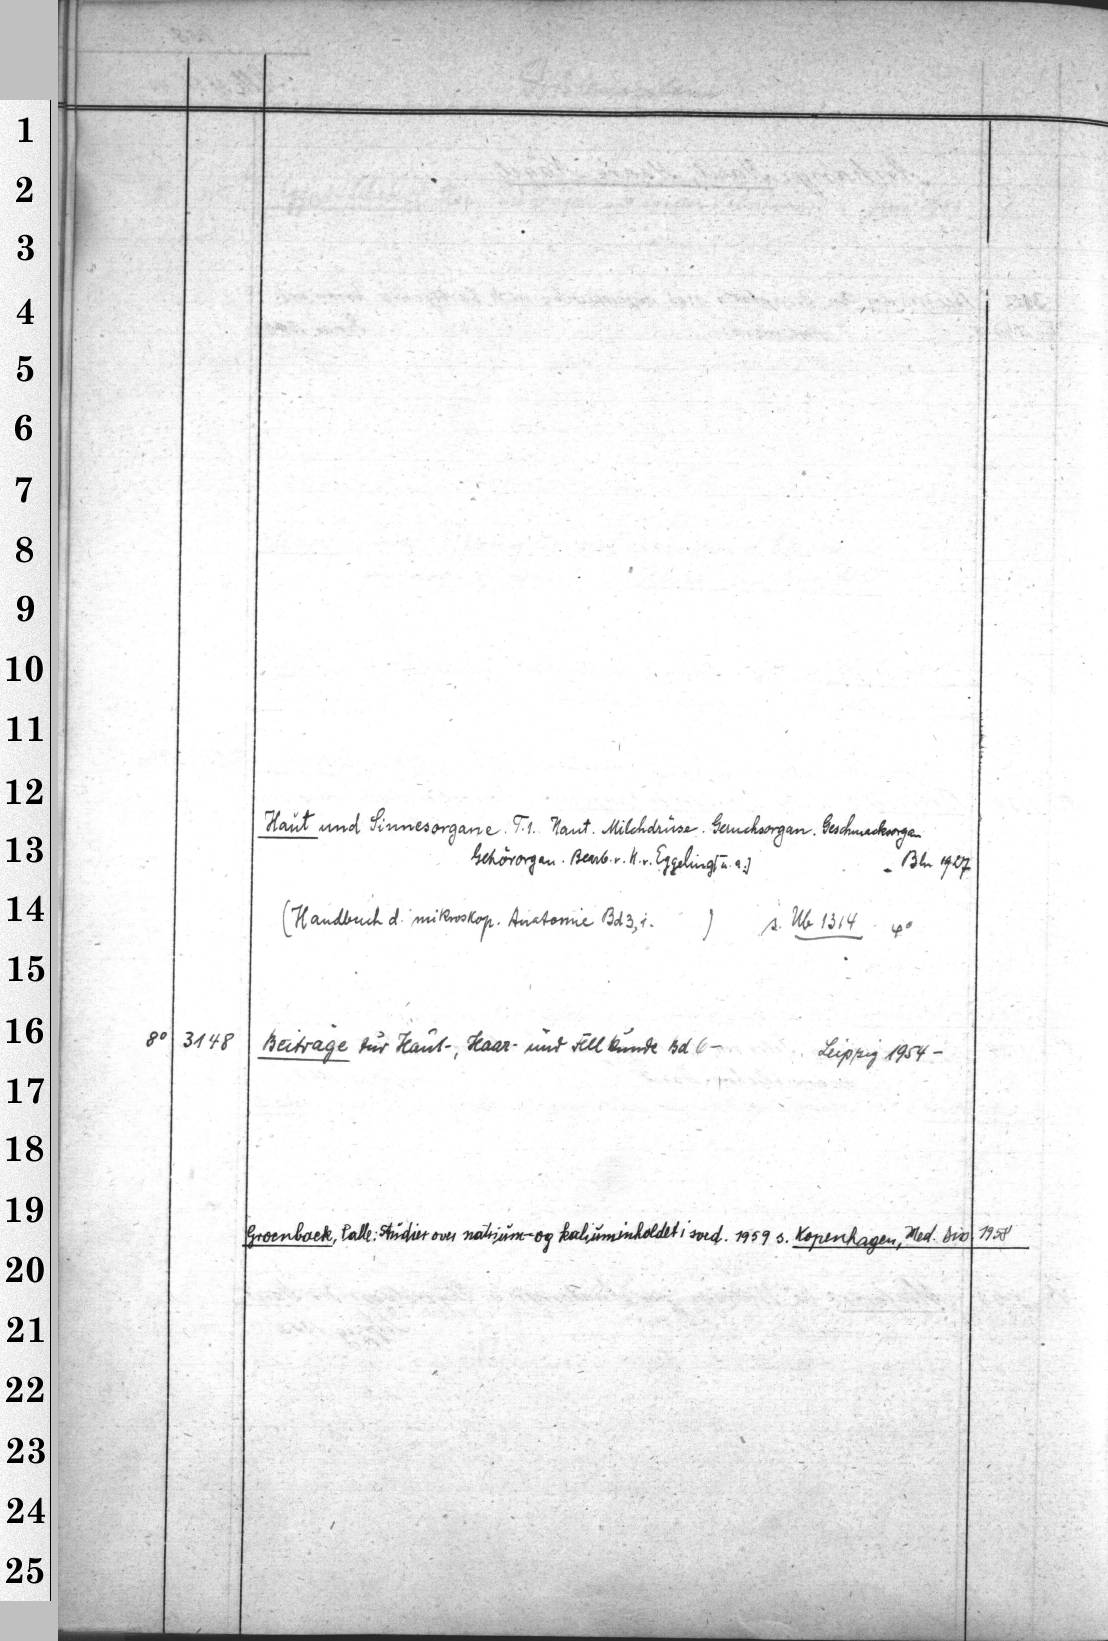 1
2
3
4
5
6
7
8
9
10
11
12
Haut und Sinnesorgane. T.1. Haut. Milchdrüse. Geruchsorgan. Geschmacksorgan
13
Gehörorgan. Bearb. v. H. v. Eggeling [u. a.] Bln 1927
14
(Handbuch d. mikroskop. Anatomie Bd 3,1. ) s. Ub 1314 4°
15
16
8° 3148 Beiträge zur Haut-, Haar- und Fellkunde Bd 6- Leipzig 1954-
17
18
19
Groenbaek, Palle: Studier over natrium- og kaliumindholdet i sved. 1959 s. Kopenhagen, Med. Diss 1958
20
21
22
23
24
25